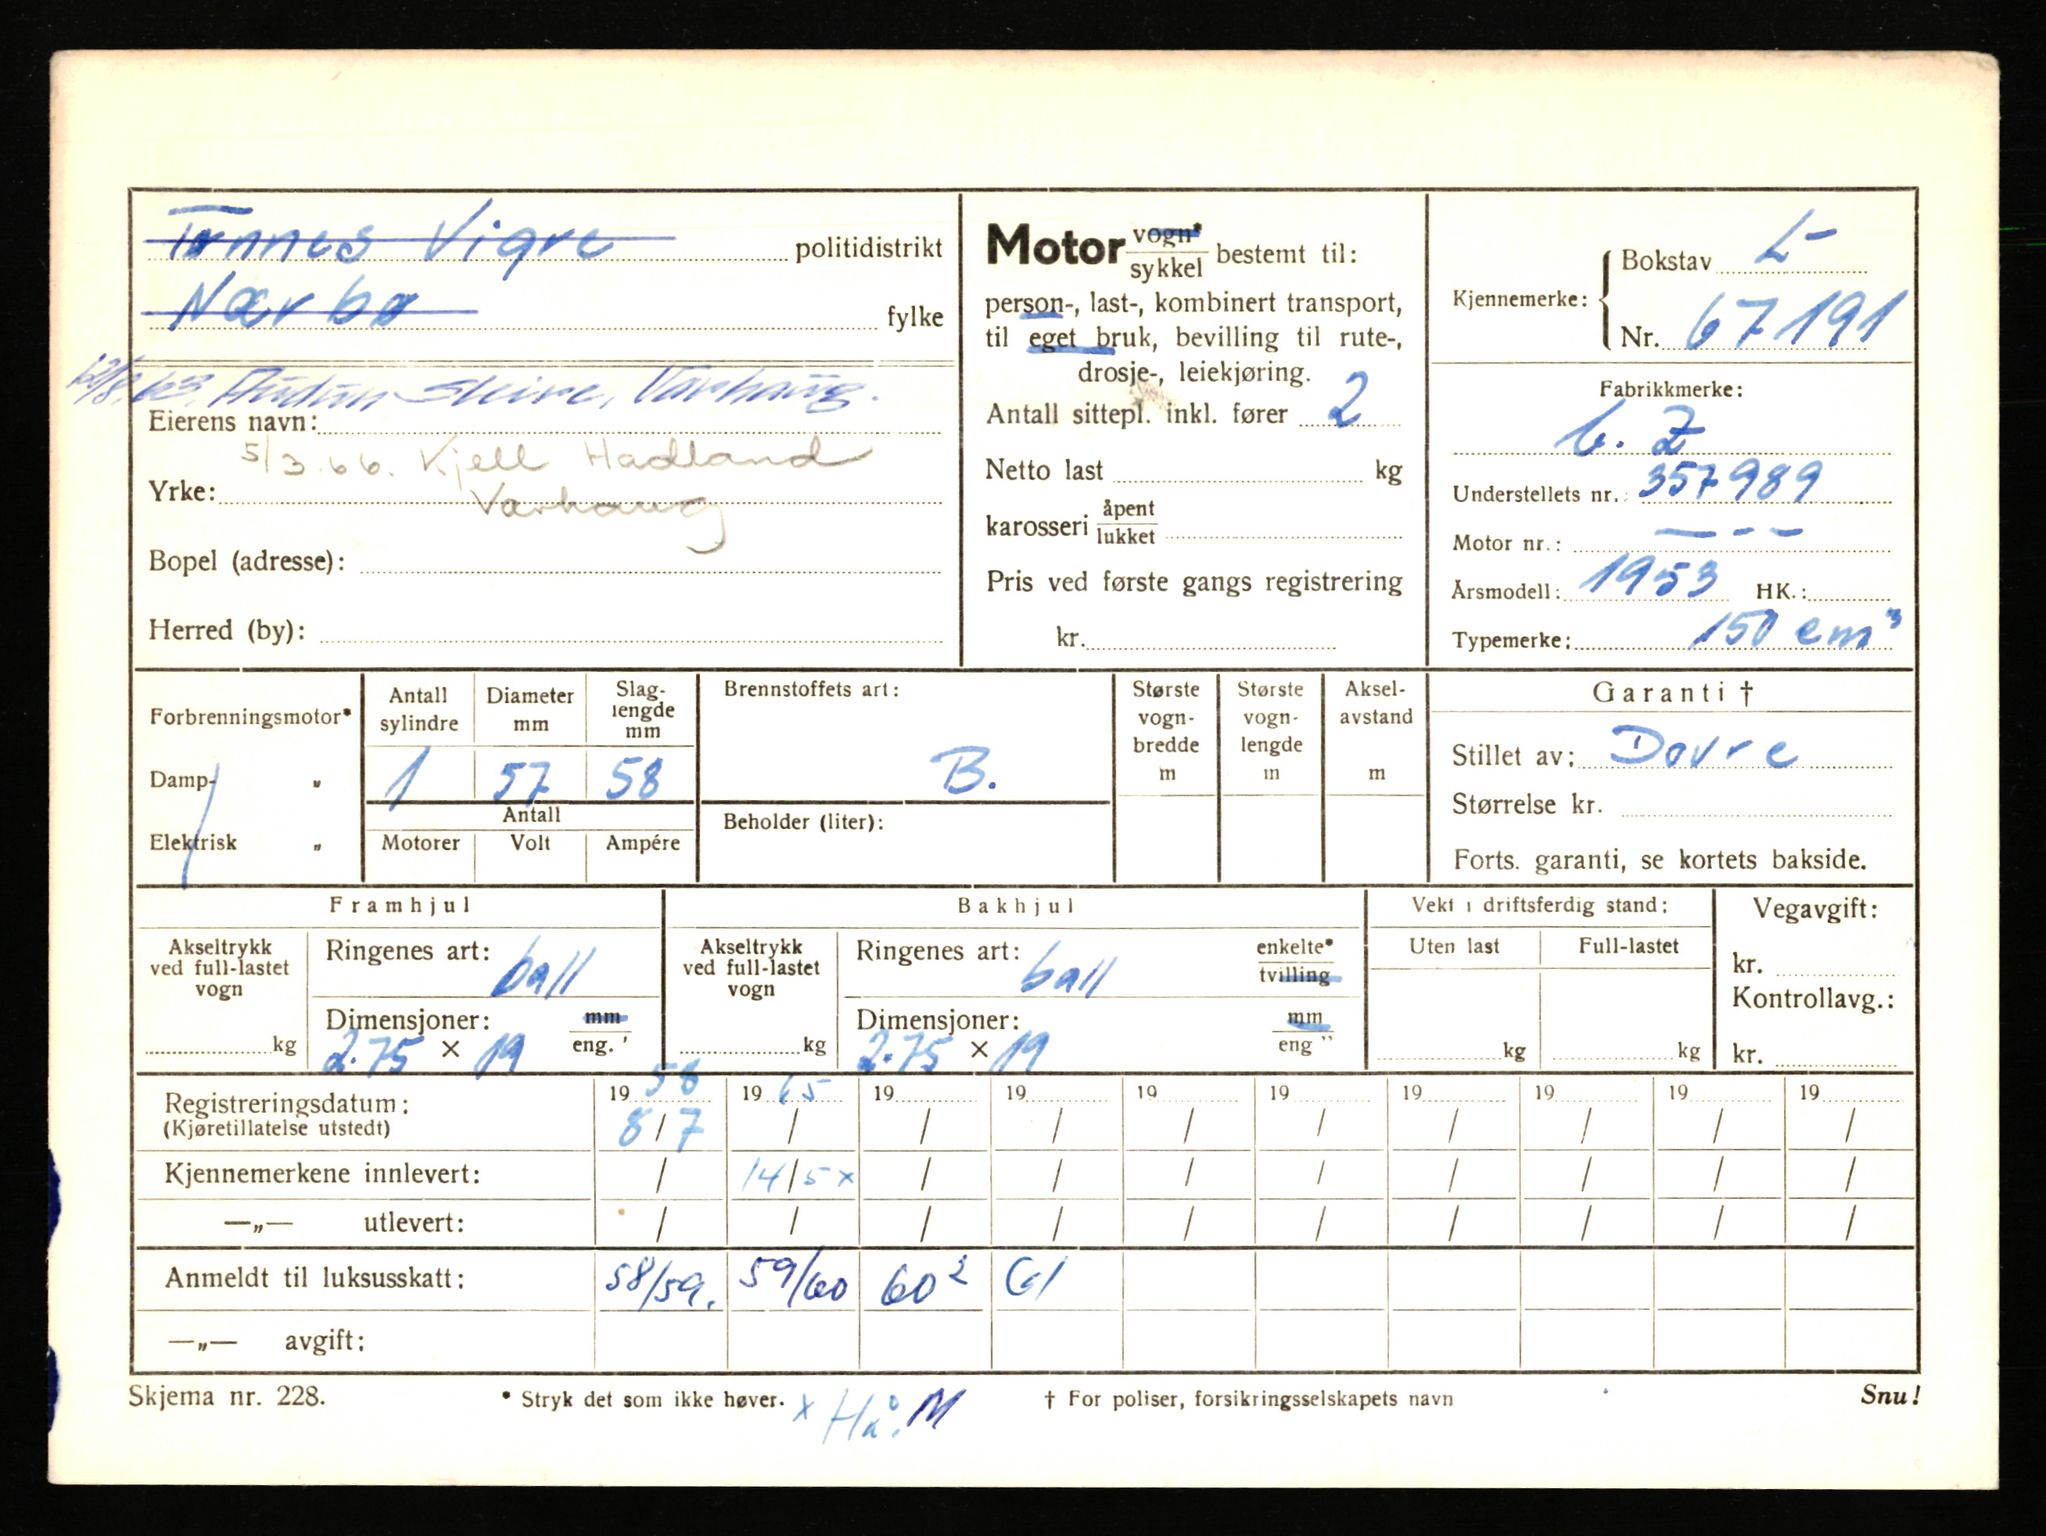 Tønnes Vigre politidistrikt
Nærbø fylke
63. Audun Skeire, Varhaug.
Eierens navn:
5/3.66. Kjell Hadland
Yrke: Varhaug
Bopel (adresse):
Herred (by):
Motor vogn* sykkel bestemt til:
person-, last-, kombinert transport,
til eget bruk, bevilling til rute-,
drosje-, leiekjøring.
Antall sittepl. inkl. fører 2
Netto last kg
karosseri åpent lukket
Pris ved første gangs registrering
kr.
Kjennemerke: Bokstav L-
Nr. 67191
Fabrikkmerke:
C. Z
Understellets nr.: 357989
Motor nr.: — - -
Årsmodell: 1953 HK.:
Typemerke: 150 cm³
Forbrenningsmotor*
Damp- „
Elektrisk „
Antall sylindre
Diameter mm
Slag-lengde mm
1 57 58
Antall
Motorer Volt Ampére
Brennstoffets art:
B.
Beholder (liter):
Største vogn-bredde m
Største vogn-lengde m
Aksel-avstand m
Garanti †
Stillet av: Dovre
Størrelse kr.
Forts. garanti, se kortets bakside.
Framhjul
Akseltrykk ved full-lastet vogn
kg
Ringenes art: ball
Dimensjoner: mm eng. '
2.75 × 19
Bakhjul
Akseltrykk ved full-lastet vogn
kg
Ringenes art: ball enkelte* tvilling
Dimensjoner: mm eng "
2.75 × 19
Vekt i driftsferdig stand:
Uten last Full-lastet
kg kg
Vegavgift:
kr.
Kontrollavg.:
kr.
Registreringsdatum: 19 58 19 65 19 19 19 19 19 19 19 19
(Kjøretillatelse utstedt) 8/7 / / / / / / / / /
Kjennemerkene innlevert: / 14/5 x / / / / / / / /
—„— utlevert: / / / / / / / / / /
Anmeldt til luksusskatt: 58/59. 59/60 60² 61
—„— avgift:
Skjema nr. 228. * Stryk det som ikke høver. x Hå. M † For poliser, forsikringsselskapets navn Snu!